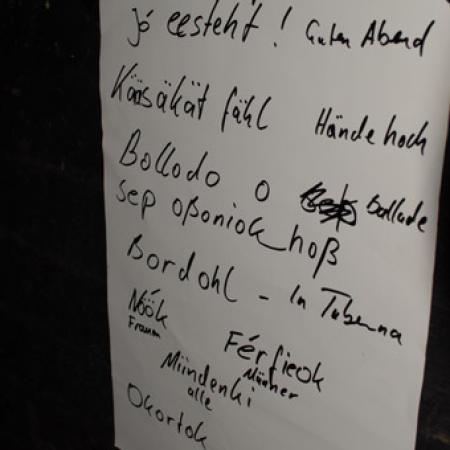 jó eesteht! Guten Abend
Käsäkät fähl Hände hoch
Bollodo o ballade
sep oßoniok hoß
Bordohl - In Taberna
Nöök
Frauen
Férfieok
Männer
Mindenki
alle
Okortok